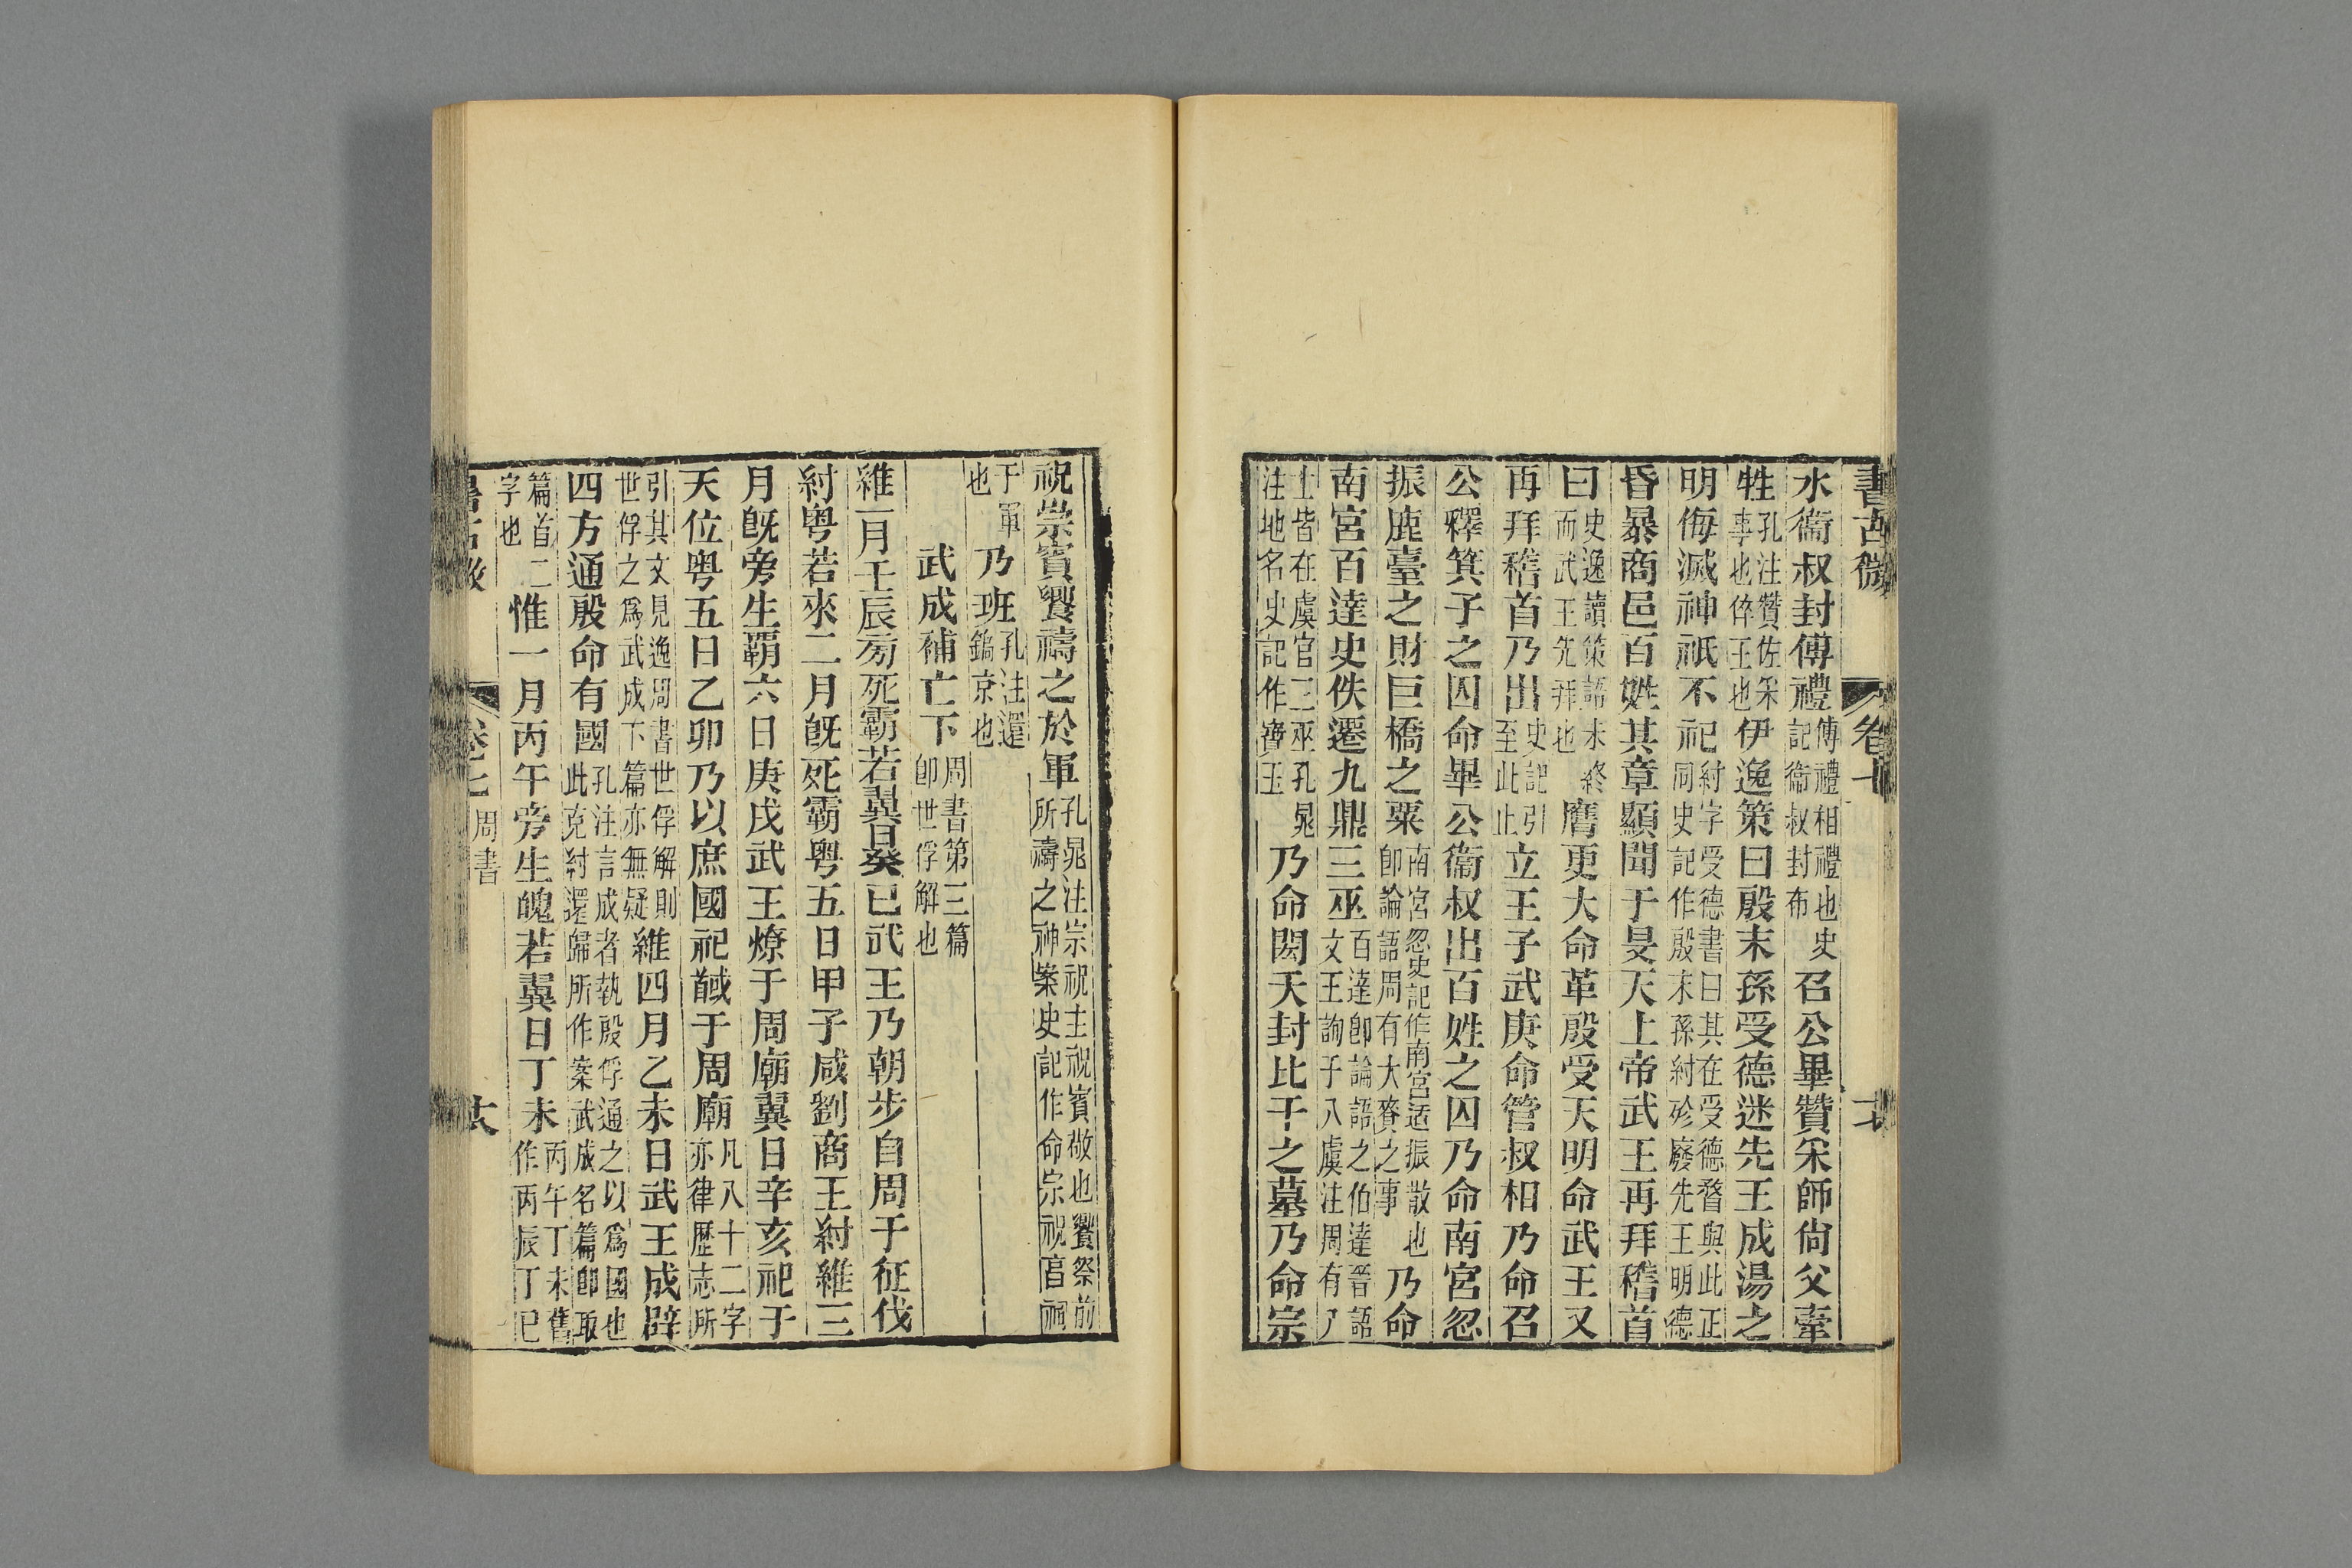 書古微 卷七 十七
水衞叔封傅禮傅禮相禮也史記衞叔封布召公畢贊采師尙父牽
牲孔注贊佐采事也倅王也伊逸策曰殷末孫受德迷先王成湯之
明侮滅神祇不祀紂字受德書曰其在受德暋與此正同史記作殷末孫紂殄廢先王明德
昏暴商邑百姓其章顯聞于旻天上帝武王再拜稽首
曰史逸讀策語未終而武王先拜也膺更大命革殷受天明命武王又
再拜稽首乃出史記引至此止立王子武庚命管叔相乃命召
公釋箕子之囚命畢公衞叔出百姓之囚乃命南宮忽
振鹿臺之財巨橋之粟南宮忽史記作南宮适振散也卽論語周有大賚之事乃命
南宮百達史佚遷九鼎三巫百達卽論語之伯達晉語文王詢于八虞注周有八
士皆在虞官三巫孔晁注地名史記作寶玉乃命閎夭封比干之墓乃命宗
祝崇賓饗禱之於軍孔晁注宗祝主祝賓敬也饗祭前所禱之神案史記作命宗祝亯祠
于軍也乃班孔注還鎬京也
武成補亡下周書第三篇卽世俘解也
維一月壬辰旁死霸若翼日癸巳武王乃朝步自周于征伐
紂粤若來二月旣死霸粤五日甲子咸劉商王紂維三
月旣旁生霸六日庚戌武王燎于周廟翼日辛亥祀于
天位粤五日乙卯乃以庶國祀馘于周廟凡八十二字亦律歷志所
引其文見逸周書世俘解則世俘之爲武成下篇亦無疑維四月乙未日武王成辟
四方通殷命有國孔注言成者執殷俘通之以爲國也此克紂還歸所作案武成名篇卽取
篇首二字也惟一月丙午旁生魄若翼日丁未丙午丁未舊作丙辰丁巳
書古微 卷七 周書 十八